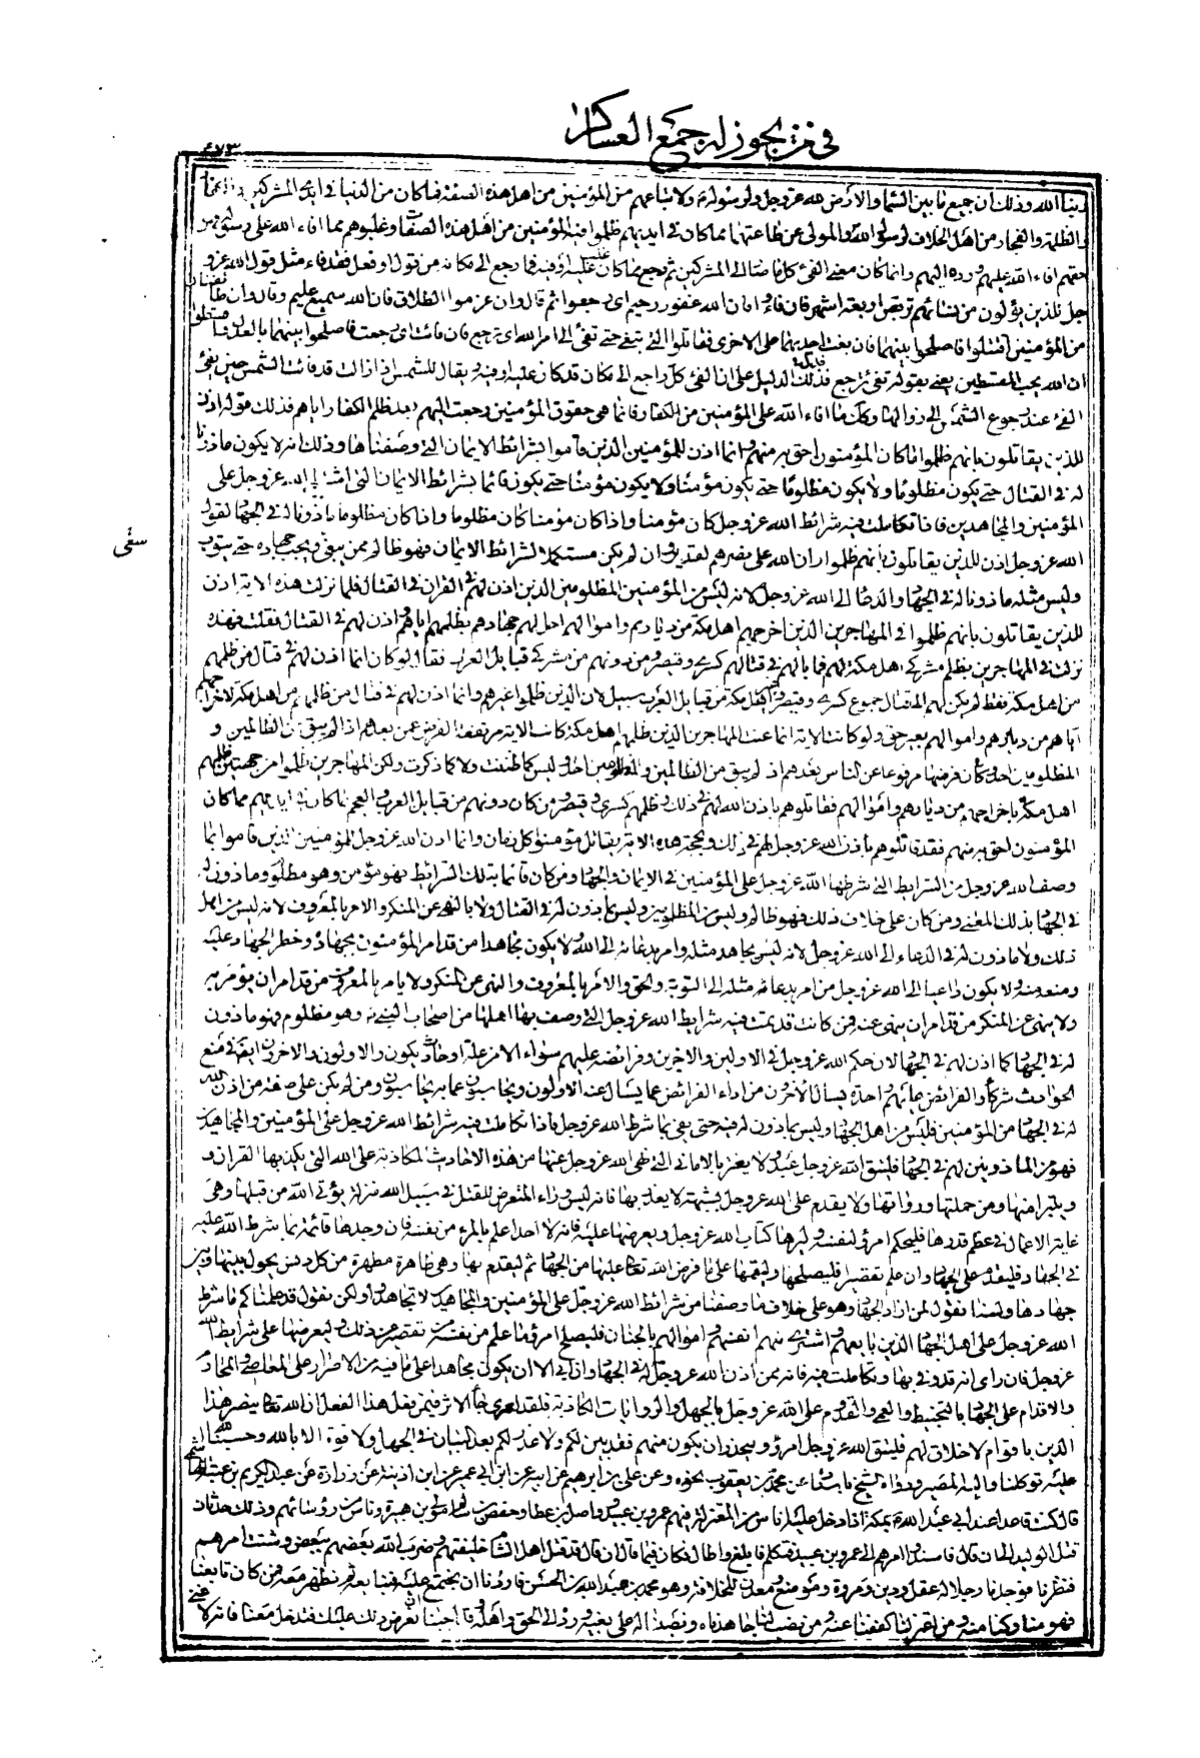 في من يجوز له جمع العساكر
٤٧٣
دينا الله وذلك ان جميع ما بين السماء والارض لله عز وجل ولرسوله ولاتباعهم من المؤمنين من اهل هذه الصفة فما كان من الدنيا في ايدي المشركين والكفار
والظلمة والفجار من اهل الخلاف لرسول الله والمولى عن طاعتهما مما كان في ايديهم ظلموا فيه المؤمنين من اهل هذه الصفات وغلبوهم مما افاء الله على رسوله فهو
حقهم افاء الله عليهم ورده اليهم وانما كان معنى الفئ كل ما صار الى المشركين ثم رجع مما كان عليه او فيه فما رجع الى مكانه من قول او فعل فقد فاء مثل قول الله عز و
جل للذين يؤلون من نسائهم تربص اربعة اشهر فان فاؤا فان الله غفور رحيم اي رجعوا ثم قال وان عزموا الطلاق فان الله سميع عليم وقال وان طائفتان
من المؤمنين اقتتلوا فاصلحوا بينهما فان بغت احديهما على الاخرى فقاتلوا التي تبغي حتى تفئ الى امر الله اي ترجع فان فاءت اي رجعت فاصلحوا بينهما بالعدل واقسطوا
ان الله يحب المقسطين يعني بقوله تفئ ترجع فذلك الدليل على ان الفئ كل راجع الى مكان قد كان عليه او فيه ويقال للشمس اذا زالت قد فائت الشمس حين يفئ
الفئ عند رجوع الشمس الى زوالها وكك ما افاء الله على المؤمنين من الكفار فانما هي حقوق المؤمنين رجعت اليهم بعد ظلم الكفار اياهم فذلك قوله اذن
للذين يقاتلون بانهم ظلموا ما كان المؤمنون احق به منهم وانما اذن للمؤمنين الذين قاموا بشرائط الايمان التي وصفناها وذلك انه لا يكون ماذونا
له في القتال حتى يكون مظلوما ولا يكون مظلوما حتى يكون مؤمنا ولا يكون مؤمنا حتى يكون قائما بشرائط الايمان التي اشترط الله عز وجل على
المؤمنين والمجاهدين فاذا تكاملت فيه شرائط الله عز وجل كان مؤمنا واذا كان مؤمنا كان مظلوما واذا كان مظلوما كان ماذونا له في الجهاد لقول
الله عز وجل اذن للذين يقاتلون بانهم ظلموا وان الله على نصرهم لقدير وان لم يكن مستكملا لشرائط الايمان فهو ظالم ممن يبغي ويجب جهاده حتى يتوب
سعى
وليس مثله ماذونا له في الجهاد والدعاء الى الله عز وجل لانه ليس من المؤمنين المظلومين الذين اذن لهم في القران في القتال فلما نزلت هذه الاية اذن
للذين يقاتلون بانهم ظلموا في المهاجرين الذين اخرجهم اهل مكة من ديارهم واموالهم احل لهم جهادهم بظلمهم اياهم واذن لهم في القتال فقلت فهذه
نزلت في المهاجرين بظلم مشركي اهل مكة لهم فما بالهم في قتالهم كسرى وقيصر ومن دونهم من مشركي قبايل العرب فقال لو كان انما اذن لهم في قتال من ظلمهم
من اهل مكة فقط لم يكن لهم الى قتال جموع كسرى وقيصر وغير اهل مكة من قبايل العرب سبيل لان الذين ظلموهم غيرهم وانما اذن لهم في قتال من ظلمهم من اهل مكة لاخراجهم
اياهم من ديارهم واموالهم بغير حق ولو كانت الاية انما عنت المهاجرين الذين ظلمهم اهل مكة كانت الاية مرتفعة الفرض عمن بعدهم اذا لم يبق من الظالمين و
المظلومين احد وكان فرضها مرفوعا عن الناس بعدهم اذا لم يبق من الظالمين والمظلومين احد وليس كما ظننت ولا كما ذكرت ولكن المهاجرين ظلموا من جهتين ظلمهم
اهل مكة باخراجهم من ديارهم واموالهم فقاتلوهم باذن الله لهم في ذلك وظلمهم كسرى وقيصر ومن كان دونهم من قبايل العرب والعجم بما كان في ايديهم مما كان
المؤمنون احق به منهم فقد قاتلوهم باذن الله عز وجل لهم في ذلك وبحجة هذه الاية يقاتل مؤمنوا كل زمان وانما اذن الله عز وجل للمؤمنين الذين قاموا بما
وصف الله عز وجل من الشرايط التي شرطها الله عز وجل على المؤمنين في الايمان والجهاد ومن كان قائما بتلك الشرائط فهو مؤمن وهو مظلوم وماذون له
في الجهاد بذلك المعنى ومن كان على خلاف ذلك فهو ظالم وليس من المظلومين وليس بماذون له في القتال ولا بالنهي عن المنكر والامر بالمعروف لانه ليس من اهل
ذلك ولا ماذون له في الدعاء الى الله عز وجل لانه ليس يجاهد مثله وامر بدعائه الى الله ولا يكون مجاهدا من قد امر المؤمنون بجهاده وحظر الجهاد عليه
ومنعه منه ولا يكون داعيا الى الله عز وجل من امر بدعاء مثله الى التوبة والحق والامر بالمعروف والنهي عن المنكر ولا يامر بالمعروف من قد امر ان يؤمر به
ولا ينهى عن المنكر من قد امر ان ينهى عنه فمن كانت قد تمت فيه شرايط الله عز وجل التي وصف بها اهلها من اصحاب النبي ص وهو مظلوم فهو ماذون
له في الجهاد كما اذن لهم في الجهاد لان حكم الله عز وجل في الاولين والاخرين وفرائضه عليهم سواء الا من علة او حادث يكون والاولون والاخرون ايضا في منع
الحوادث شركاء والفرائض عليهم واحدة يسال الاخرون من اداء الفرائض عما يسال عنه الاولون ويحاسبون عما به يحاسبون ومن لم يكن على صفة من اذن الله
له في الجهاد من المؤمنين فليس من اهل الجهاد وليس بماذون له فيه حتى يفئ بما شرط الله عز وجل فاذا تكاملت فيه شرائط الله عز وجل على المؤمنين والمجاهدين
فهو من الماذونين لهم في الجهاد فليتق الله عز وجل عبد ولا يغتر بالاماني التي نهى الله عز وجل عنها من هذه الاحاديث الكاذبة على الله التي يكذبها القران و
يتبرا منها ومن حملتها ورواتها ولا يقدم على الله عز وجل بشبهة لا يعذر بها فانه ليس وراء المتعرض للقتل في سبيل الله منزلة يؤتى الله من قبلها وهي
غاية الاعمال في عظم قدرها فليحكم امرؤ لنفسه وليرها كتاب الله عز وجل ويعرضها عليه فانه لا احد اعلم بالمرء من نفسه فان وجدها قائمة بما شرط الله عليه
في الجهاد فليقدم على الجهاد وان علم تقصيرا فليصلحها وليقمها على ما فرض الله تعالى عليها من الجهاد ثم ليقدم بها وهي طاهرة مطهرة من كل دنس يحول بينها وبين
جهادها ولسنا نقول لمن اراد الجهاد وهو على خلاف ما وصفنا من شرائط الله عز وجل على المؤمنين والمجاهدين لا تجاهدوا ولكن نقول قد علمناكم ما شرط
الله عز وجل على اهل الجهاد الذين بايعهم واشترى منهم انفسهم واموالهم بالجنان فليصلح امرؤ ما علم من نفسه من تقصير عن ذلك وليعرضها على شرايط الله
عز وجل فان راى انه قد وفى بها وتكاملت فيه فانه ممن اذن الله عز وجل له في الجهاد وان ابى الا ان يكون مجاهدا على ما فيه من الاصرار على المعاصي والمحارم
والاقدام على الجهاد بالتخبيط والعمى والقدوم على الله عز وجل بالجهل والروايات الكاذبة فلقد لعمري جاء الاثر فيمن فعل هذا الفعل ان الله تعالى ينصر هذا
الدين باقوام لا خلاق لهم فليتق الله عز وجل امرؤ وليحذر ان يكون منهم فقد بين لكم ولا عذر لكم بعد البيان في الجهل ولا قوة الا بالله وحسبنا الله
عليه توكلنا واليه المصير ورواه الشيخ باسناده عن محمد بن يعقوب نحوه وعن علي بن ابراهيم عن ابيه عن ابن ابي عمير عن ابن اذينة عن زرارة عن عبد الكريم بن عتبة الهاشمي
قال كنت قاعدا عند ابي عبد الله ع بمكة اذ دخل عليه اناس من المعتزلة فيهم عمرو بن عبيد وواصل بن عطا وحفص بن سالم مولى بن هبيرة وناس من رؤسائهم وذلك حدثان
قتل الوليد الى ان قال فاسندوا امرهم الى عمرو بن عبيد فتكلم فابلغ واطال فكان فيما قال ان قال قد قتل اهل الشام خليفتهم وضرب الله بعضهم ببعض وشتت امرهم
فنظرنا فوجدنا رجلا له عقل ودين ومروة وموضع ومعدن للخلافة وهو محمد بن عبد الله بن الحسن فاردنا ان نجتمع عليه فنبايعه ثم نظهر معه فمن كان تابعنا
فهو منا وكنا منه ومن اعتزلنا كففنا عنه ومن نصب لنا جاهدناه ونصبنا له على بغيه ورده الى الحق واهله وقد احببنا ان نعرض ذلك عليك فتدخل معنا فانه لا غنى